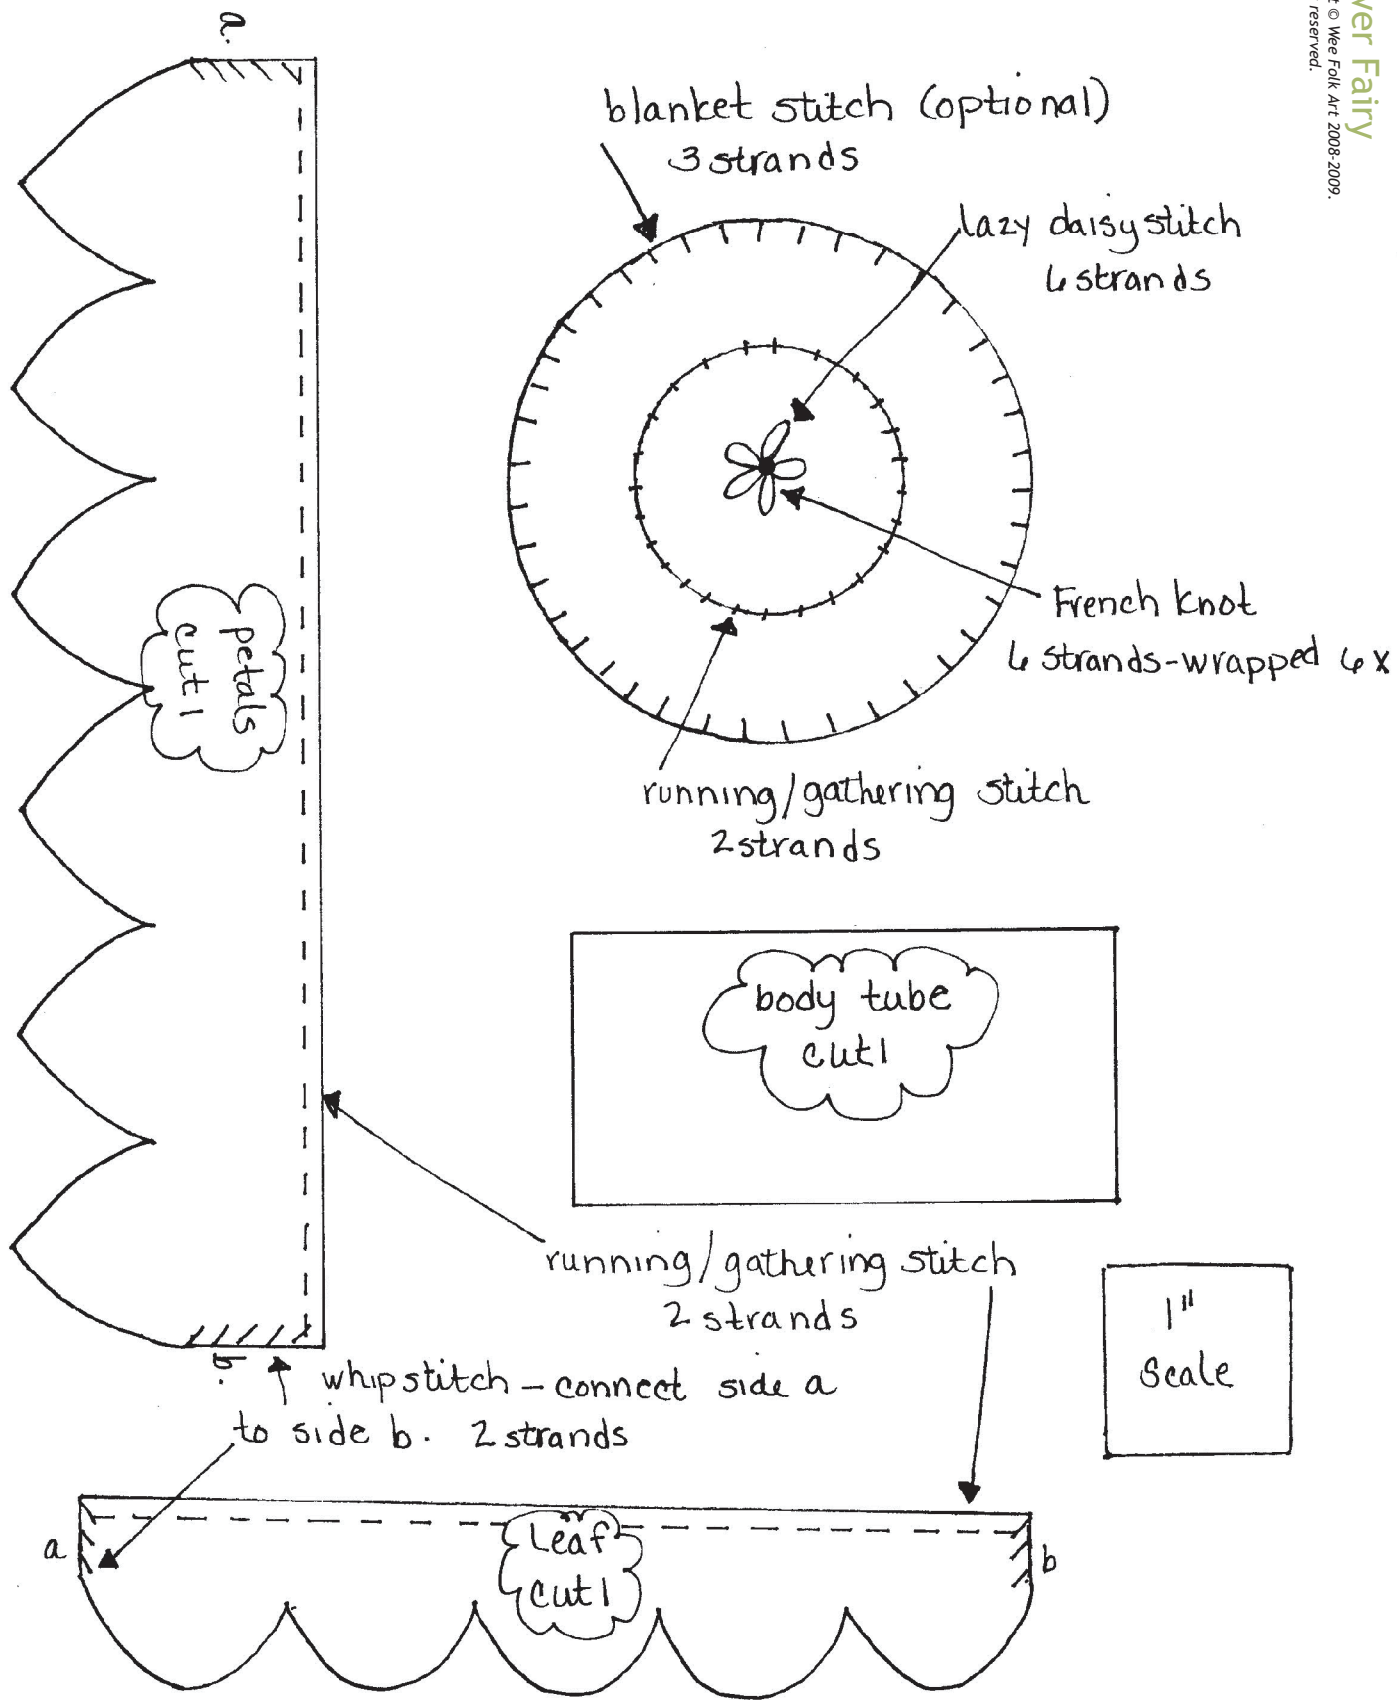 wer Fairy
t © Wee Folk Art 2008-2009.
reserved.
a.
blanket stitch (optional)
3 strands
lazy daisy stitch
6 strands
petals
cut 1
French Knot
6 strands-wrapped 6x
running/gathering stitch
2 strands
body tube
cut 1
running/gathering stitch
2 strands
1"
Scale
b.
whipstitch - connect side a
to side b. 2 strands
a
Leaf
cut 1
b